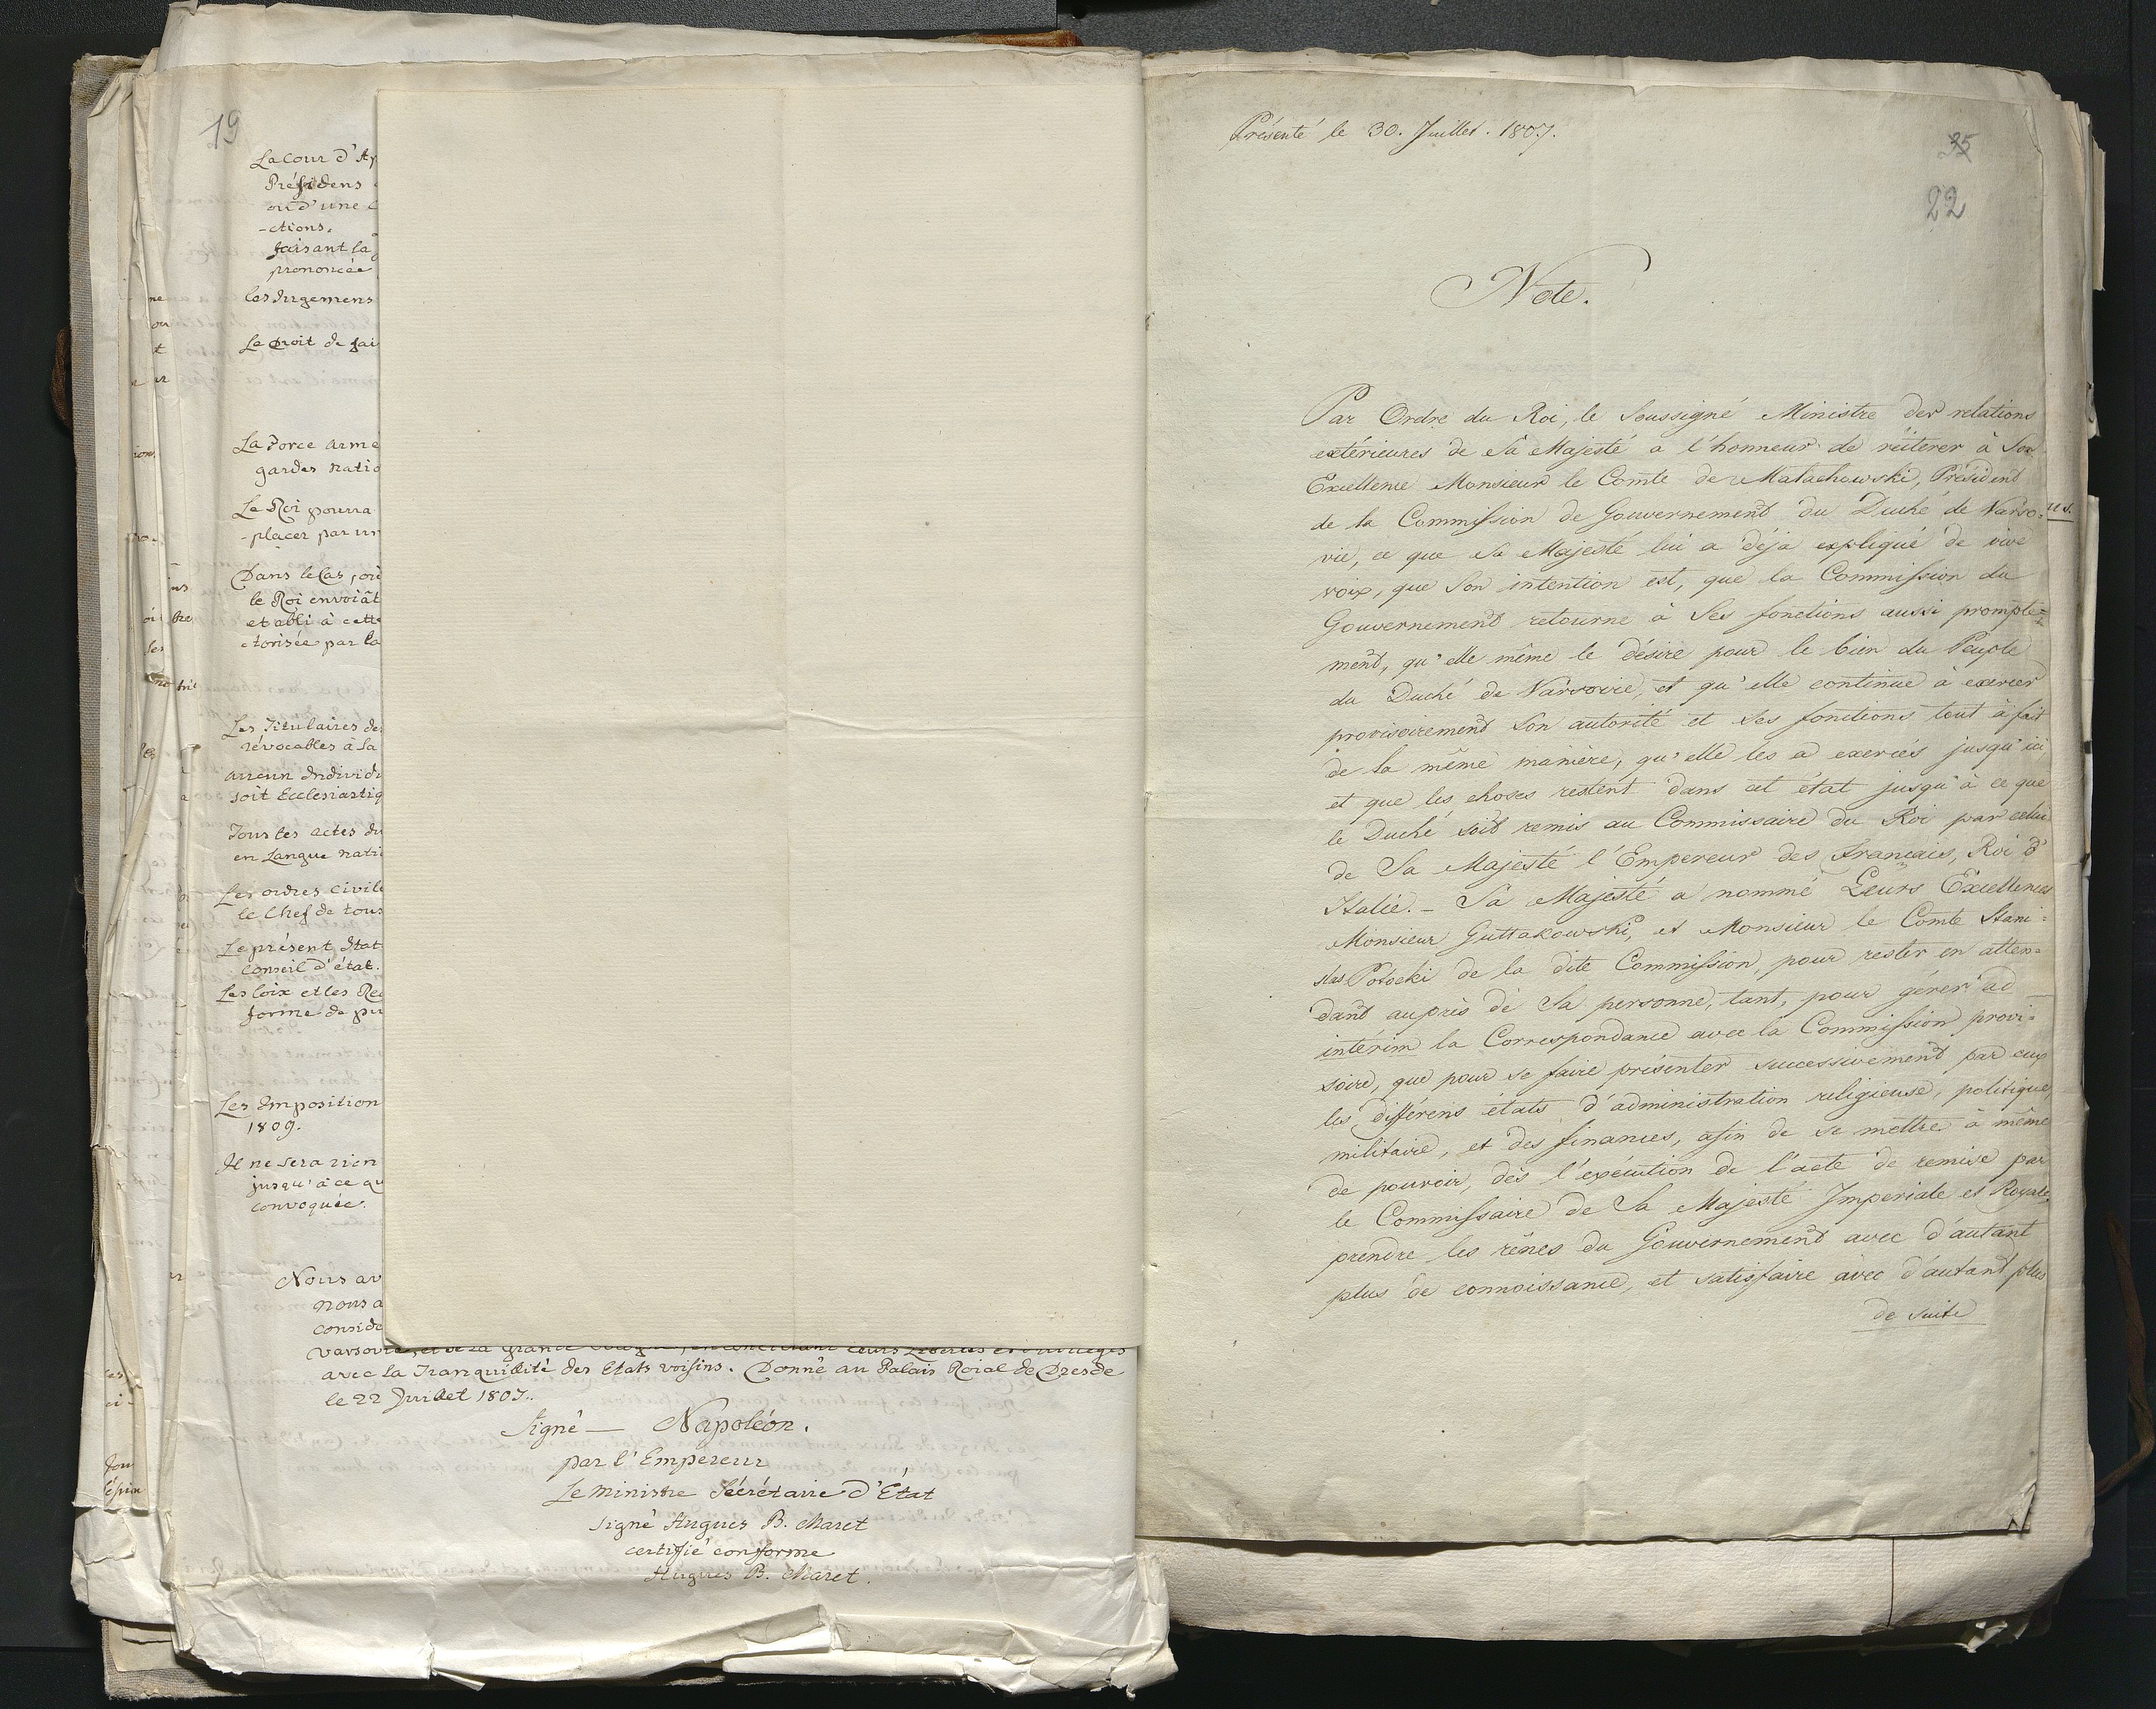 19
La Cour d'Ap
Présidens
ou d'une
-ctions.
faisant la
prononcée
les Jugemens
Le Droit de fai
La Force armé
gardes natio
Le Roi pourra
-placer par un
Dans le Cas, où
le Roi envoiât
etabli à cette
ctorisée par la
Les Titulaires de
révocables à la
aucun Individu
soit Ecclesiastiq
Tous les actes du
en Langue natio
Les ordres civils
le Chef de tous
Le présent Stat
Conseil d'état.
Les loix et les Re
forme de pu
Les Imposition
1809.
Il ne sera rien
jusqu'à ce qu
convoquée.
Nous av
nous a
conside
varsovie, et de la grande
avec la Tranquilité des Etats voisins. Donné au Palais Roial de Dresde
le 22 Juillet 1807.
Signé — Napoléon.
par l'Empereur
Le ministre Sécrétaire d'État
signé Hugues B. Maret
certifié conforme
Hugues B. Maret.
Présenté le 30. Juillet. 1807.
35
22
Note.
Par Ordre du Roi, le Soussigné Ministre des relations
extérieures de Sa Majesté a l'honneur de réiterer à Son
Excellence Monsieur le Comte de Malachowski, Président
de la Commission de Gouvernement du Duché de Varso-
vie, ce que Sa Majesté lui a déja expliqué de vive
voix, que Son intention est, que la Commission du
Gouvernement retourne à Ses fonctions aussi prompte=
ment, qu'elle même le désire pour le bien du Peuple
du Duché de Varsovie, et qu'elle continue à exercer
provisoirement Son autorité et ses fonctions tout à fait
de la même manière, qu'elle les a exercés jusqu'ici
et que les choses restent dans cet état jusqu'à ce que
le Duché soit remis au Commissaire du Roi par celui
de Sa Majesté l'Empereur des Français, Roi d'
Italie. - Sa Majesté a nommé Leurs Excellences
Monsieur Guttakowski, et Monsieur le Comte Stani=
slas Potocki de la dite Commission, pour rester en atten=
dant auprès de Sa personne, tant, pour gérer ad
intérim la Correspondance avec la Commission provi=
soire, que pour se faire présenter successivement par eux
les différens états d'administration religieuse, politique,
militaire, et des finances, afin de se mettre à même
de pouvoir, dès l'exécution de l'acte de remise par
le Commissaire de Sa Majesté Imperiale et Royale,
prendre les rênes du Gouvernement avec d'autant
plus de connoissance, et satisfaire avec d'autant plus
de suite